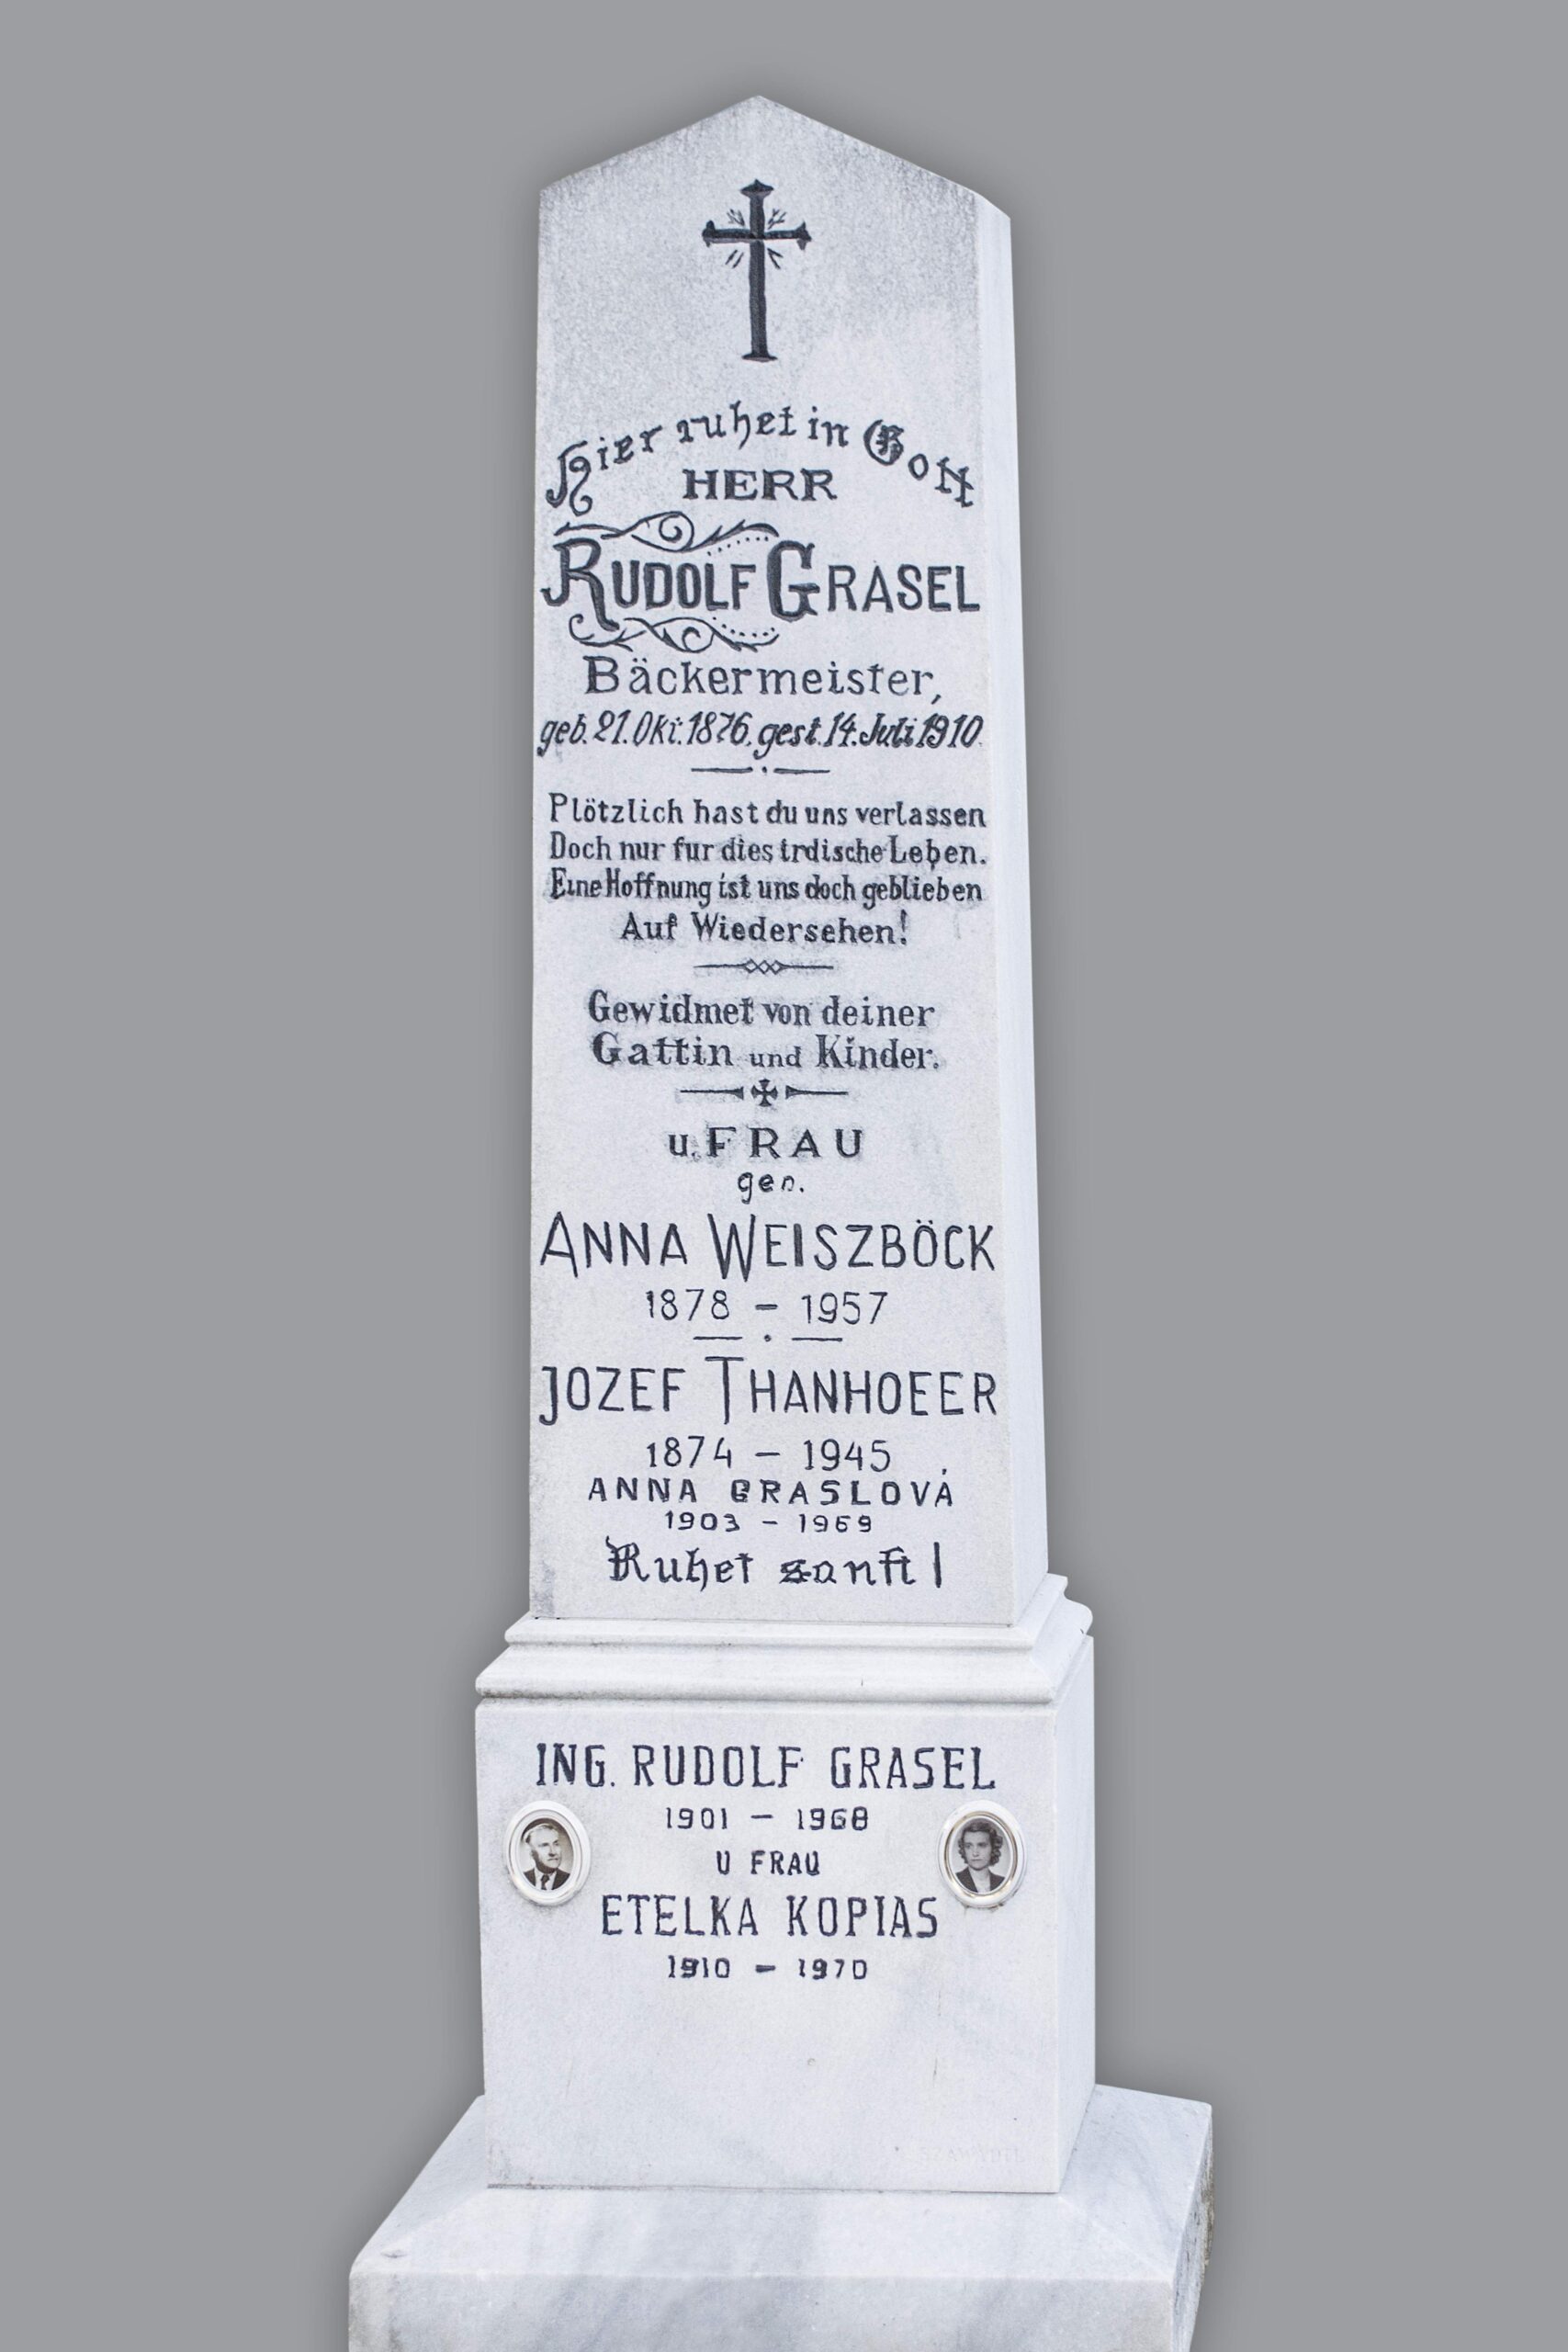 Hier ruhet in Gott
HERR
RUDOLF GRASEL
Bäckermeister,
geb. 21. Okt. 1876. gest. 14. Juli 1910.
Plötzlich hast du uns verlassen
Doch nur fur dies irdische Leben.
Eine Hoffnung ist uns doch geblieben
Auf Wiedersehen!
Gewidmet von deiner
Gattin und Kinder.
u. FRAU
gen.
ANNA WEISZBÖCK
1878 – 1957
JOZEF THANHOEER
1874 – 1945
ANNA GRASLOVÁ
1903 – 1969
Ruhet sanft!
ING. RUDOLF GRASEL
1901 – 1968
U FRAU
ETELKA KOPIAS
1910 – 1970